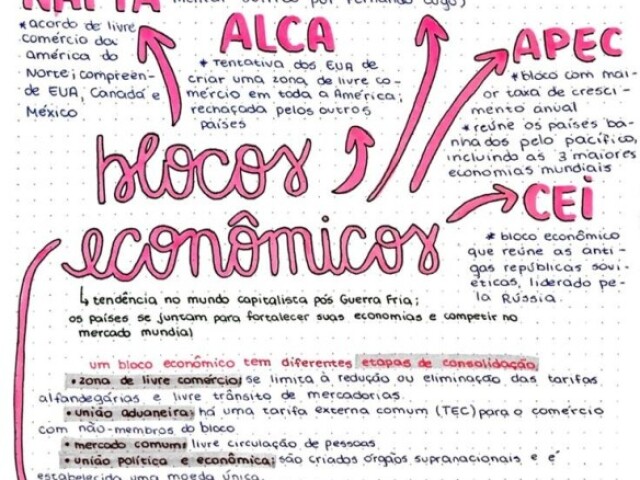 NAFTA
* acordo de livre
comércio da
américa do
Norte; compreen-
de EUA, Canadá e
México
por Fernando
ALCA
* Tentativa dos EUA de
criar uma zona de livre co-
mércio em toda a América;
rechaçada pelos outros
países
APEC
* bloco com mai-
or taxa de cresci-
mento anual
* reúne os países ba-
nhados pelo pacífico,
incluindo as 3 maiores
economias mundiais
blocos
econômicos
CEI
* bloco econômico
que reúne as anti-
gas repúblicas sovi-
éticas, liderado pe-
la Rússia.
↳ tendência no mundo capitalista pós Guerra Fria;
os países se juntam para fortalecer suas economias e competir no
mercado mundial
um bloco econômico tem diferentes etapas de consolidação
• zona de livre comércio: se limita à redução ou eliminação das tarifas
alfandegárias e livre trânsito de mercadorias.
• união aduaneira: há uma tarifa externa comum (TEC) para o comércio
com não-membros do bloco
• mercado comum: livre circulação de pessoas.
• união política e econômica: são criados órgãos supranacionais e é
estabelecida uma moeda única.